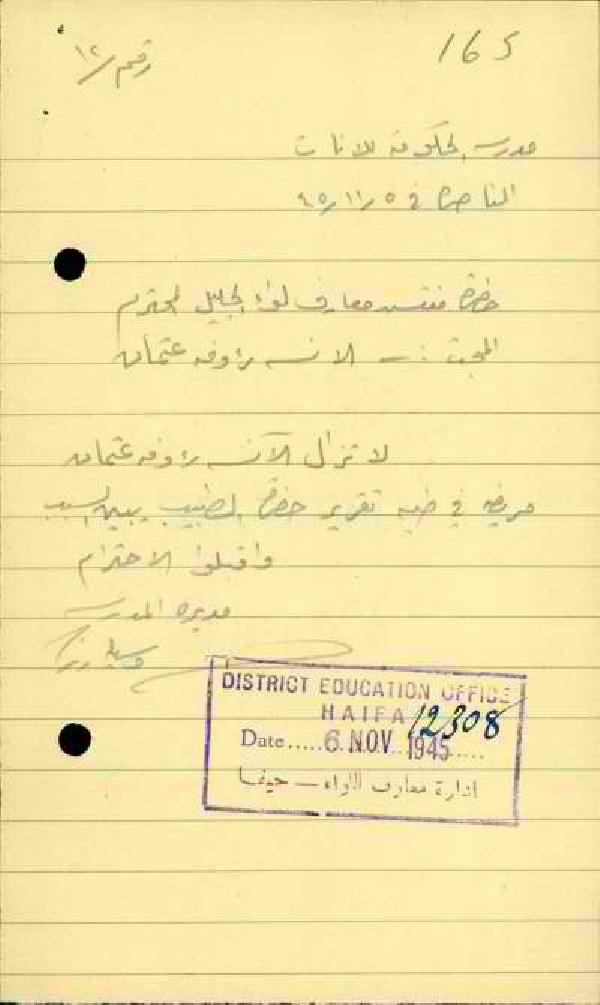 165
رقم /١٢
مدرسة الحكومة للاناث
الناصرة في ٥ /١١ /٤٥
حضرة مفتش معارف لواء الجليل المحترم
المبحث :ــ الانسه رؤوفه عثمان
لا تزال الآنسه رؤوفه عثمان
مريضه في طيه تقرير حضرة الطبيب يبين السبب
واقبلوا الاحترام
مديرة المدرسه
DISTRICT EDUCATION OFFICE
HAIFA 12308
Date.....6 NOV 1945.....
ادارة معارف اللواء — حيفا